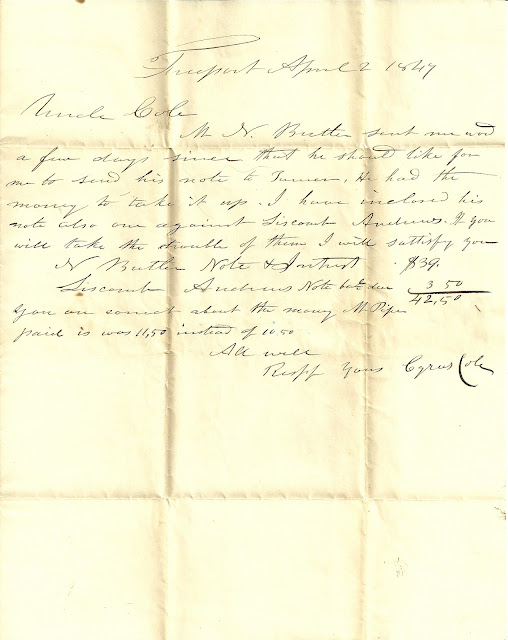 Freeport April 2 1847
Uncle Cole
Mr N. Butler sent me word
a few days since that he should like for
me to send his note to Turner. He had the
money to take it up. I have inclosed his
note also one against Liscomb Andrews. If you
will take the trouble of them I will sattisfy you
N Butler Note & Intrest . $39.
Liscomb Andrews Note bal due 3 50
42,50
You are correct about the money Mr Pipe
paid is was 11,50 instead of 10.50
All well
Respf Yours Cyrus Cole